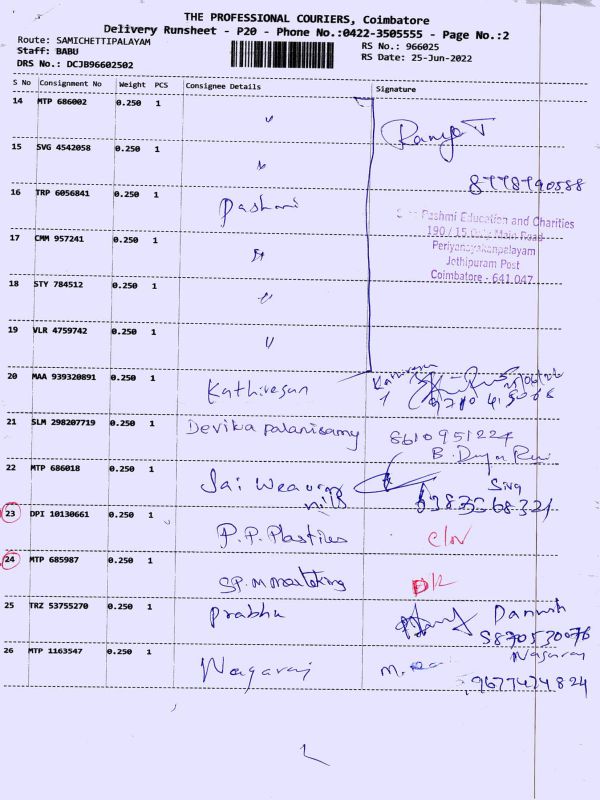 THE PROFESSIONAL COURIERS, Coimbatore
Delivery Runsheet - P20 - Phone No.:0422-3505555 - Page No.:2
Route: SAMICHETTIPALAYAM
Staff: BABU
DRS No.: DCJB96602502
RS No.: 966025
RS Date: 25-Jun-2022
S No Consignment No Weight PCS Consignee Details Signature
14 MTP 686002 0.250 1 Ramya T
15 SVG 4542058 0.250 1
8778790588
16 TRP 6056841 0.250 1 Pashmi
Pashmi Education and Charities
190 / 15, Main Road
Periyanayakanpalayam
Jothipuram Post
Coimbatore - 641 047
17 CMM 957241 0.250 1
18 STY 784512 0.250 1
19 VLR 4759742 0.250 1
20 MAA 939320891 0.250 1 Kathiresan
21 SLM 298207719 0.250 1 Devika Palanisamy 8610951224
22 MTP 686018 0.250 1 Sai Weaving mills Siva
23 DPI 10130661 0.250 1 P.P. Plastiles
24 MTP 685987 0.250 1 SP. M Marketing
25 TRZ 53755270 0.250 1 Prabhu
26 MTP 1163547 0.250 1 Nagaraj Nagaraj
9677474824